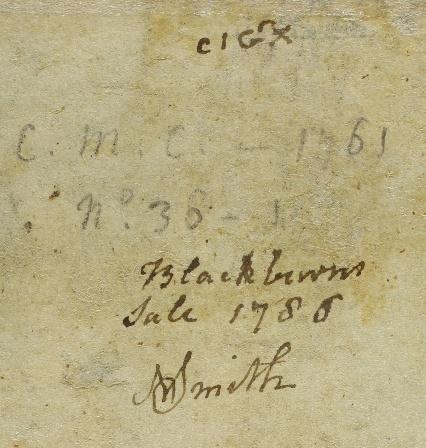 C. M. C. — 1761
No. 36 -
Blackburns
Sale 1786
NSmith